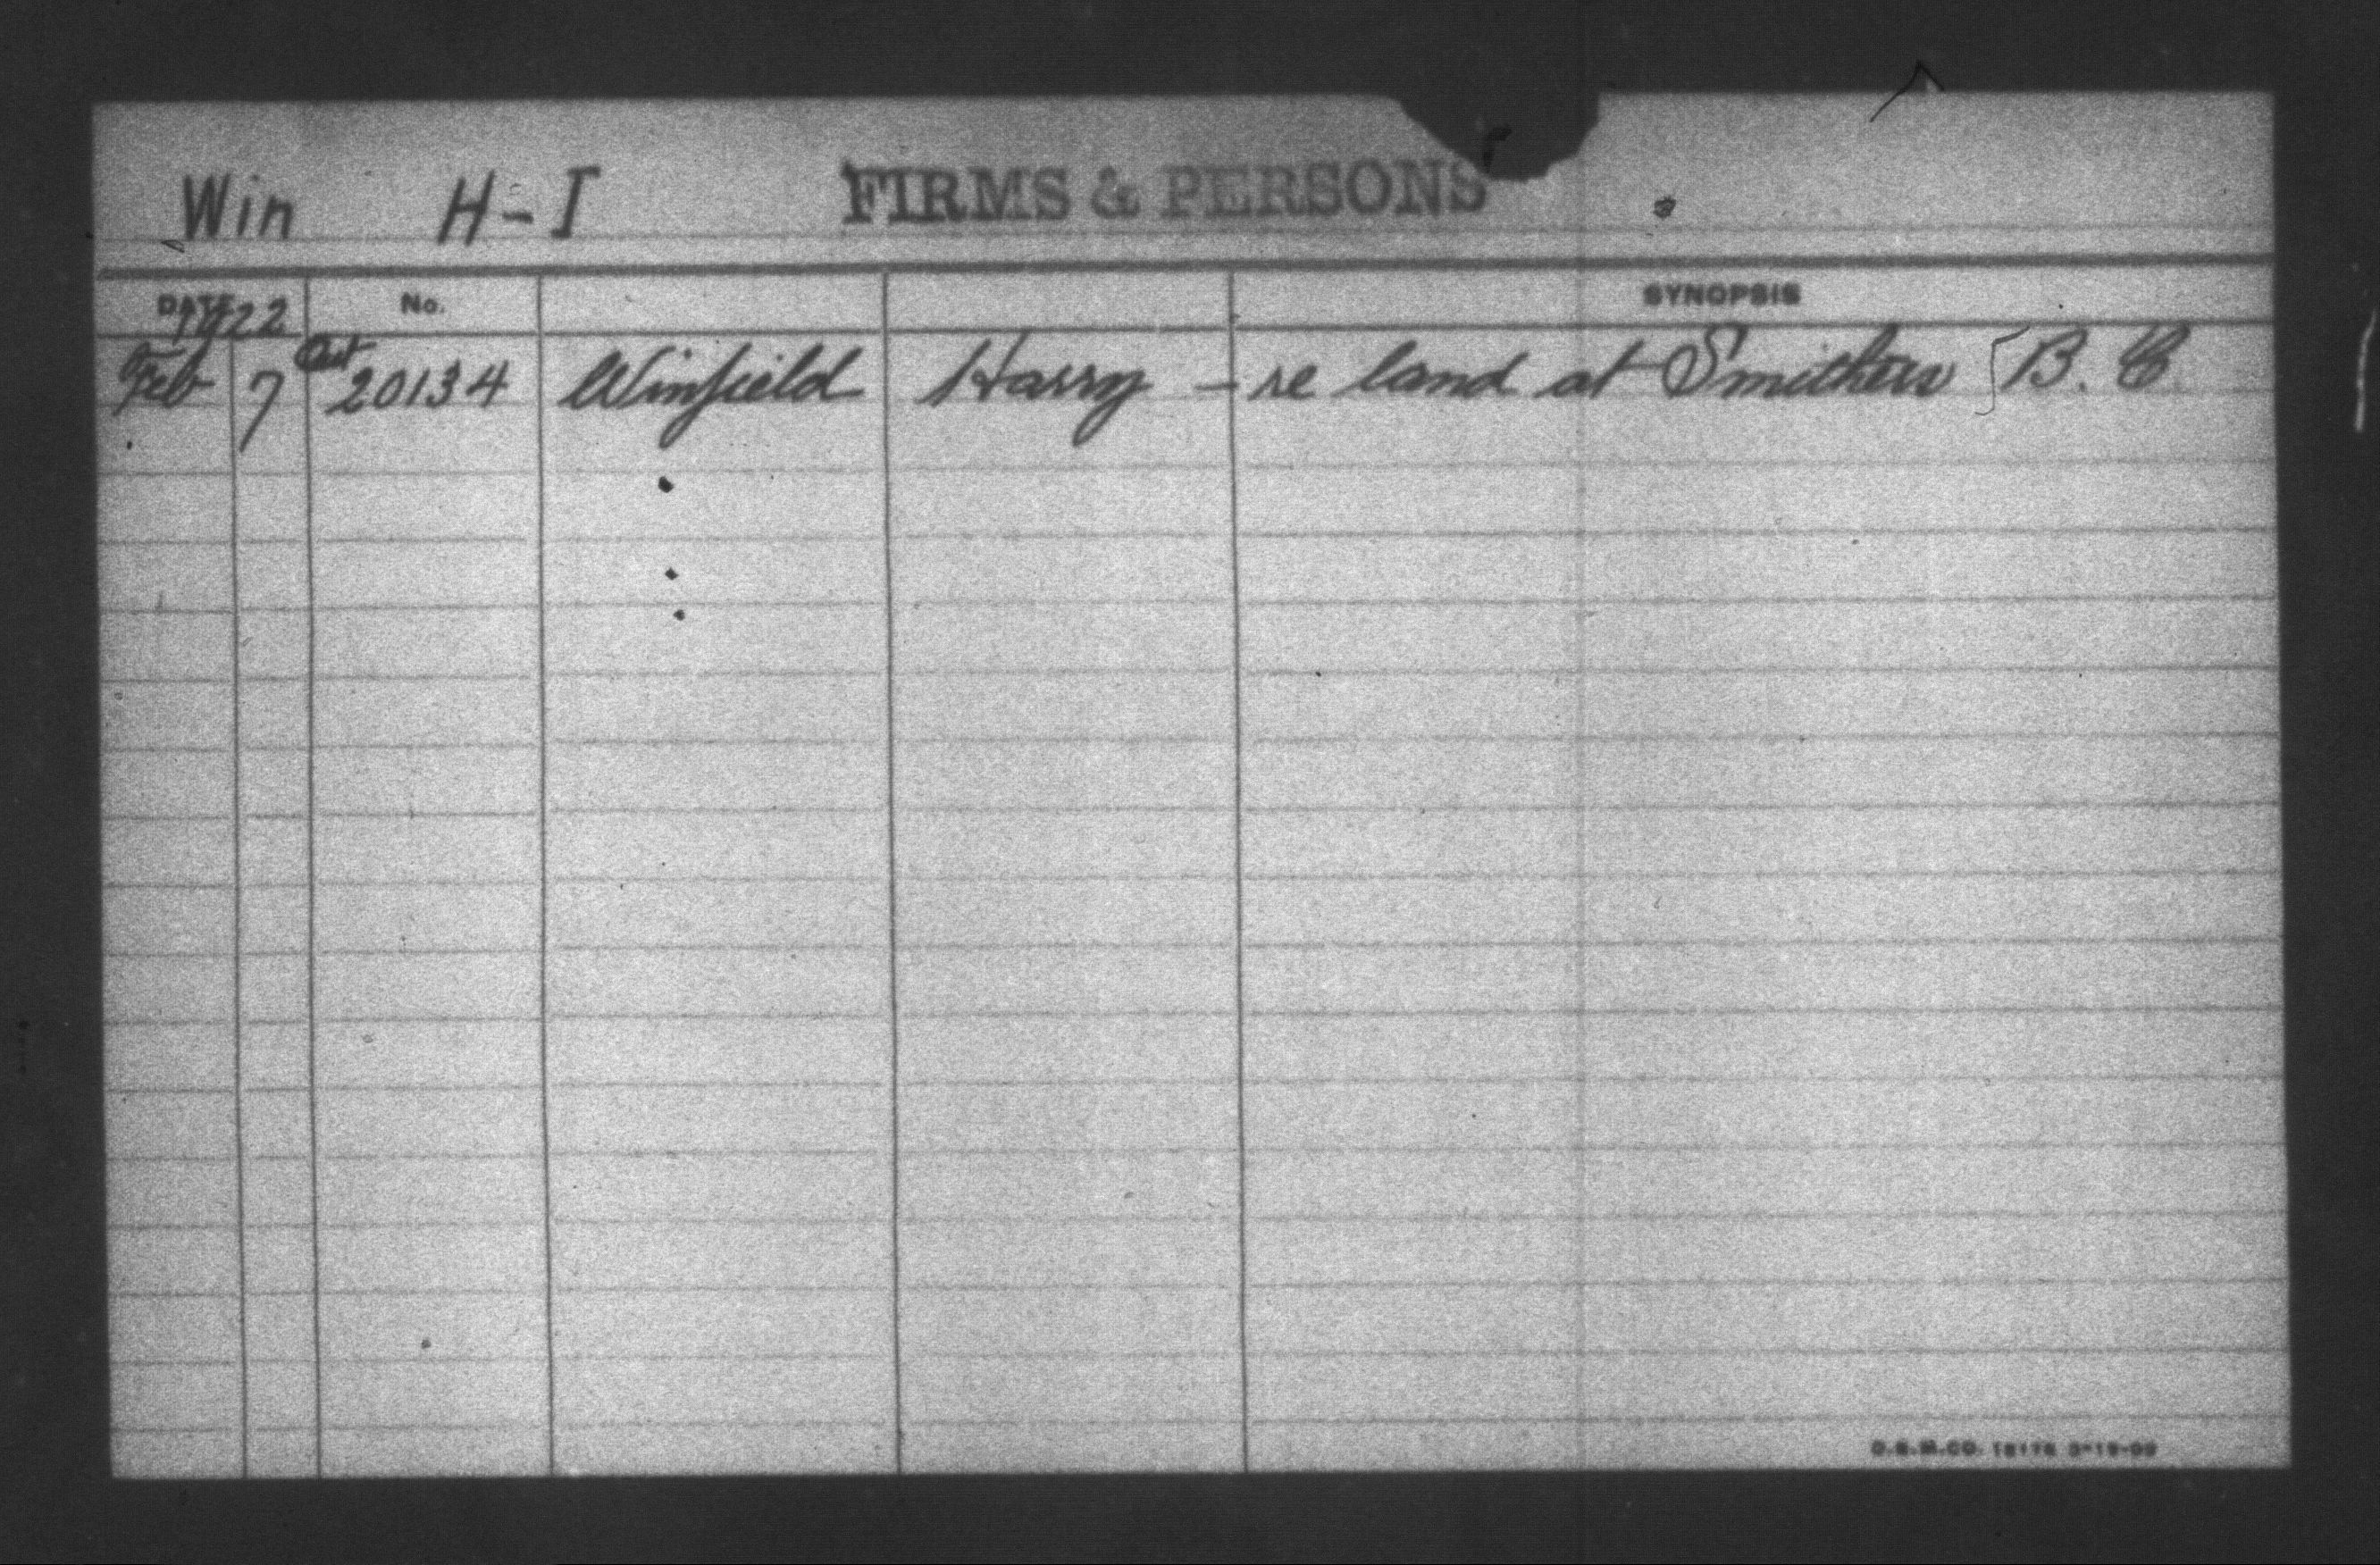 Win H-I FIRMS & PERSONS
DATE No. SYNOPSIS
1922
Feb 7 Out 20134 Winfield Harry - re land at Smithers B.C.